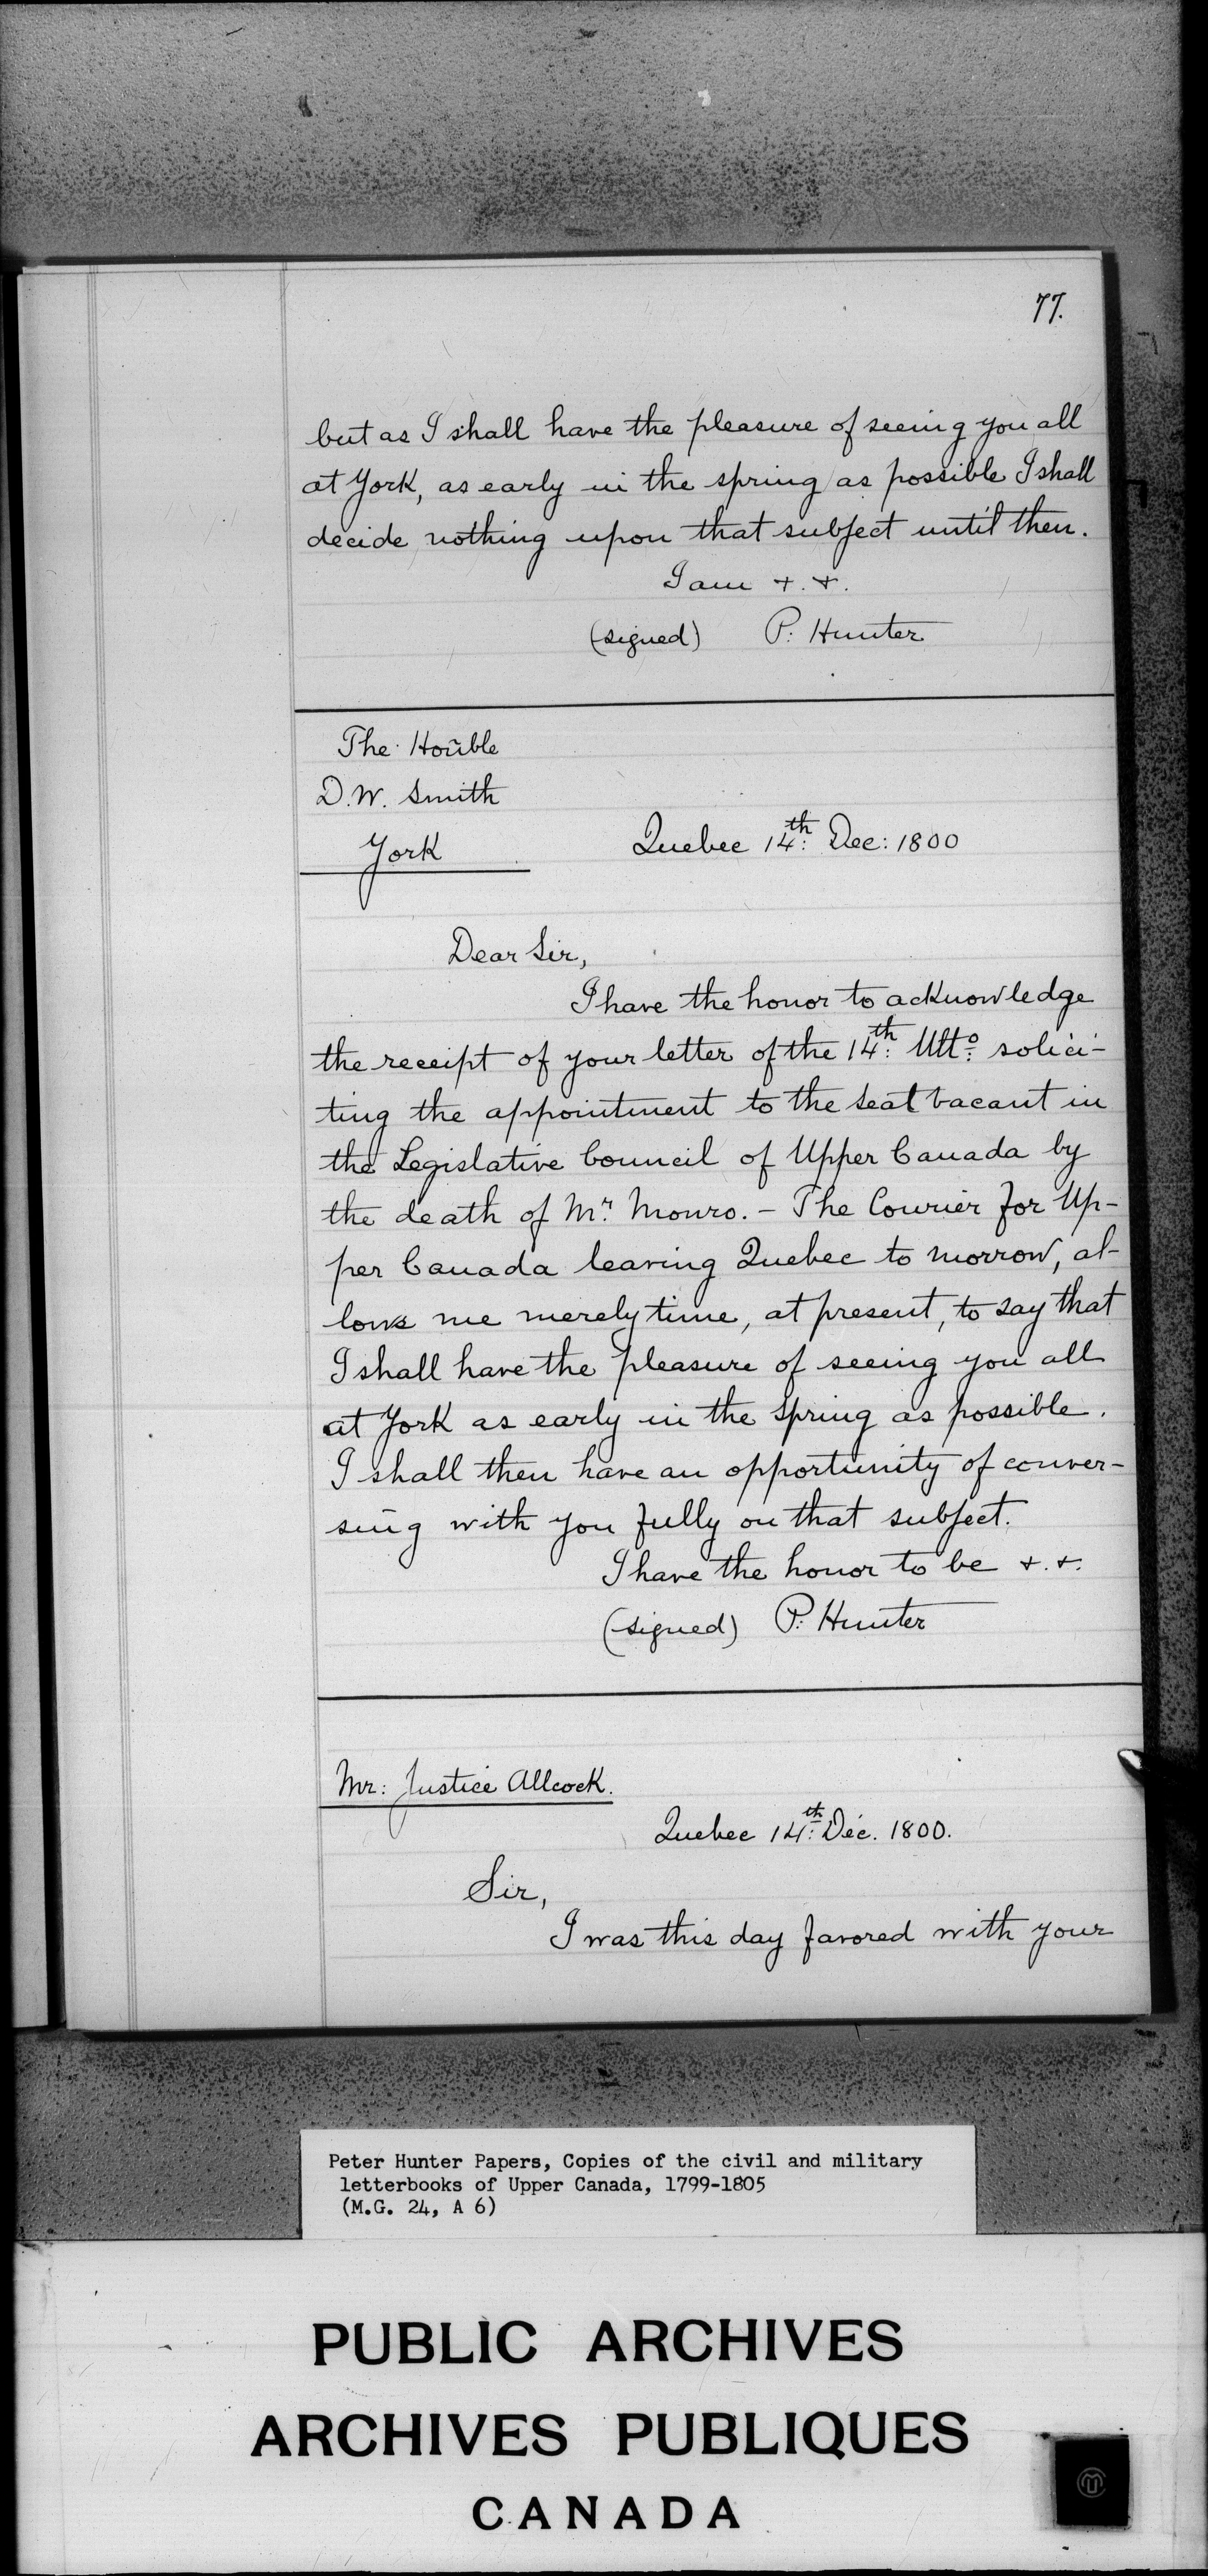 77.
but as I shall have the pleasure of seeing you all
at York, as early in the spring as possible I shall
decide nothing upon that subject until then.
I am +. +.
(signed) P: Hunter
The Hoñble
D.W. Smith
York
Quebec 14th: Dec: 1800
Dear Sir,
I have the honor to acknowledge
the receipt of your letter of the 14th: Ulto: solici-
ting the appointment to the seat vacant in
the Legislative Council of Upper Canada by
the death of Mr. Monro. - The Courier for Up-
per Canada leaving Quebec to morrow, al-
lows me merely time, at present, to say that
I shall have the pleasure of seeing you all
at York as early in the Spring as possible.
I shall then have an opportunity of conver-
sing with you fully on that subject.
I have the honor to be +. +.
(signed) P. Hunter
Mr: Justice Allcock.
Quebec 14th: Dec. 1800.
Sir,
I was this day favored with your
Peter Hunter Papers, Copies of the civil and military
letterbooks of Upper Canada, 1799-1805
(M.G. 24, A 6)
PUBLIC ARCHIVES
ARCHIVES PUBLIQUES
CANADA